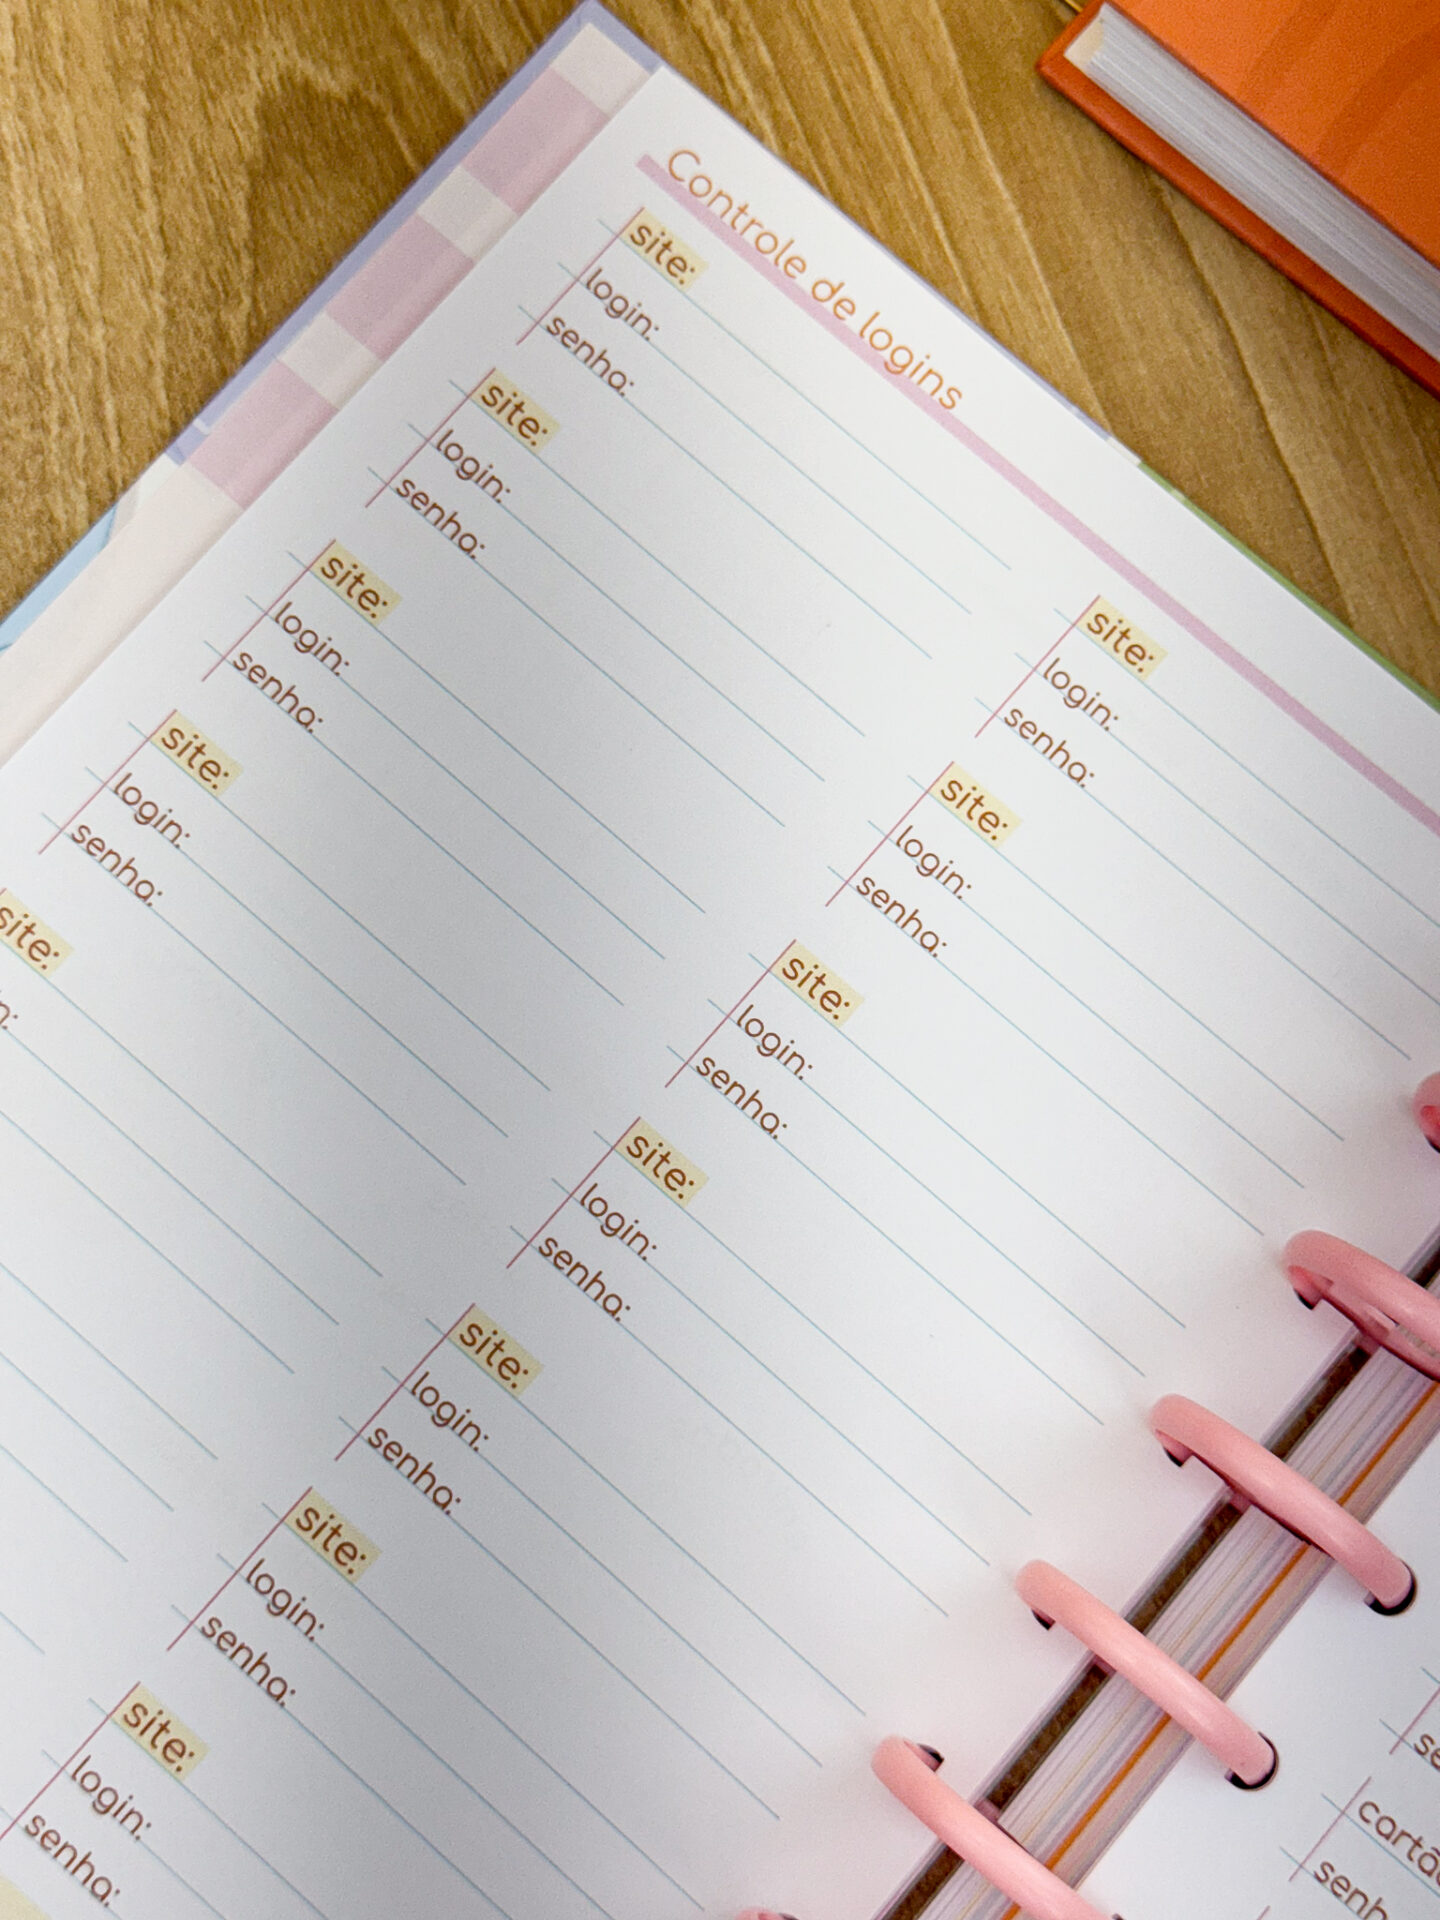 Controle de logins
site:
login:
senha:
site:
login:
senha:
site:
login:
senha:
site:
login:
senha:
site:
site:
login:
senha:
site:
login:
senha:
site:
login:
senha:
site:
login:
senha:
site:
login:
senha:
site:
login:
senha:
site:
login:
senha: